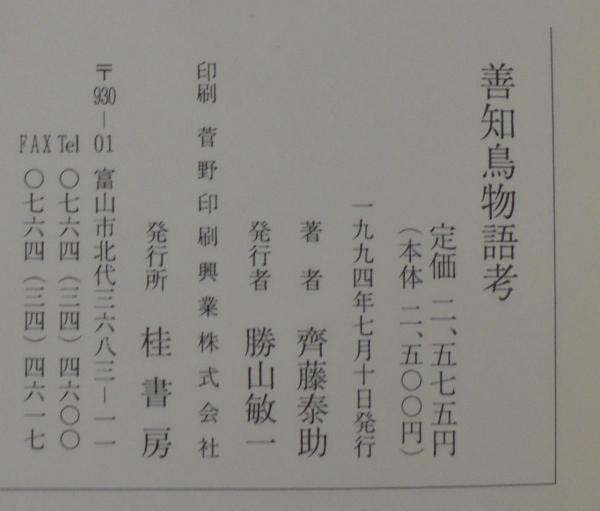 善知鳥物語考
定価 二、五七五円
（本体 二、五〇〇円）
一九九四年七月十日発行
著者 齊藤泰助
発行者 勝山敏一
印刷 菅野印刷興業株式会社
発行所 桂書房
〒930－01 富山市北代三六八三－一一
Tel 〇七六四（三四）四六〇〇
FAX 〇七六四（三四）四六一七